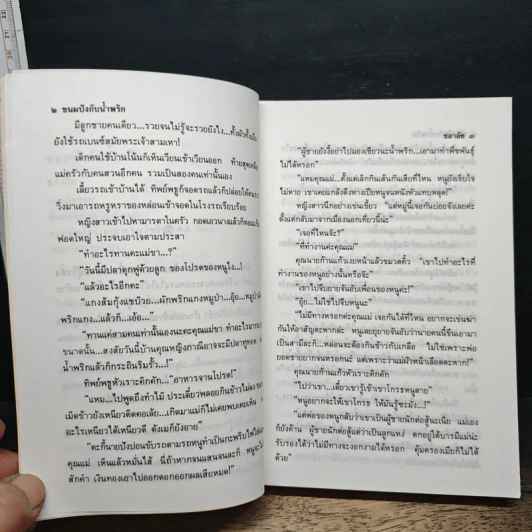 ๒ ขนมปังกับน้ำพริก
มีลูกชายคนเดียว...รวยจนไม่รู้จะรวยยังไง...ทั้งผัวทั้งเมีย
ยังใช้รถเบนซ์สมัยพระเจ้าสามเหา!
เด็กคนใช้บ้านโน้นก็เห็นเวียนเข้าเวียนออก ท้ายสุดเหลือ
แม่ครัวกับคนสวนอีกคน รวมเป็นสองคนเท่านั้นเอง
เลี้ยวรถเข้าบ้านได้ ทิพย์พธูก็จอดรถแล้วก็ปล่อยให้คน
วิ่งมาเอารถหรูหราของหล่อนเข้าจอดในโรงรถเรียบร้อย
หญิงสาวเข้าไปหามารดาในครัว กอดเอวนางแล้วก็หอมแก้ม
ฟอดใหญ่ ประจบเอาใจตามประสา
"ทำอะไรทานคะแม่ขา...?"
"วันนี้มีปลาดุกฟูด้วยลูก ของโปรดของหนูไง...!"
"แล้วอะไรอีกคะ"
"แกงส้มกุ้งแชบ๊วย...ผักพริกแกงหมูป่า...อุ๊ย...หมูป่าผัด
พริกแกง...แล้วก็...เอ้อ..."
"ทานแค่สามคนเท่านั้นเองนะคะคุณแม่ขา ทำอะไรมาก
ขนาดนั้น...สงสัยวันนี้บ้านคุณหญิงภาวณีอาจจะมีปลาทูทอด
น้ำพริกแล้วก็กระถินริมรั้ว...!"
ทิพย์พธูหัวเราะคิกคัก... "อาหารจานโปรด!"
"แหม...ไปพูดถึงทำไม ประเดี๋ยวพลอยกินข้าวไม่ลง
เม็ดข้าวยังเหนียวติดคอเลย...เกิดมาแม่ก็ไม่เคยพบเคยเห็น
อะไรเหนียวได้เหนียวดี ตังเมก็ยังอาย"
"ตะกี้นายปังปอนขับรถตามรถหนูทำเป็นกะพริบไฟใส่
คุณแม่ เห็นแล้วหมั่นไส้ นี่ถ้าหากจนแสนจนละก็ หนูจะไม่
สักคำ เงินทองเอาไปออกดอกออกผลเสียหมด!"
ชลาลัย ๓
"ผู้ชายยังงี้อย่าไปมองเชียวนะน้ำพริก...เอามาทำพืชพันธุ์
ไม่ได้หรอก"
"แหมคุณแม่...ตั้งแต่เลิกกินเส้นกันเสียที่ไหน หนูยังเจ็บใจ
ไม่หาย เขาเคยแกล้งดึงหางเปียหนูจนหนังหัวแทบหลุด!"
หญิงสาวนึกอย่างเข่นเขี้ยว "แต่หมู่นี้เจอกันบ่อยจังเลยค่ะ
ตั้งแต่กลับมาจากเมืองนอกเที่ยวนี้น่ะ"
"เจอที่ไหนจ๊ะ?"
"ที่ทำงานค่ะคุณแม่"
คุณนายก้านแก้วเงยหน้าแล้วขมวดคิ้ว "เขาไปทำอะไรที่
ทำงานของหนูอย่างนั้นหรือจ๊ะ"
"เขาไปจีบยายจันอับเพื่อนของหนูค่ะ!"
"อุ๊ย...ไม่ใช่ไปจีบหนูนะ"
"ไม่มีทางหรอกค่ะคุณแม่ เจอกันได้ที่ไหน อยากจะเข่นฆ่า
กันให้อาสัญตะหากล่ะ หนูเลยยุยายจันอับว่านายคนนี้ขืนเอามา
เป็นสามีละก็...หล่อนจะต้องกินข้าวกับเกลือ ไม่ใช่เพราะพ่อ
ยอดชายยากจนหรอกนะ แต่เพราะว่าแม่ผัวหน้าเลือดตะหาก!"
คุณนายก้านแก้วหัวเราะคิกคัก
"ไปว่าเขา...เดี๋ยวเขารู้เข้าเขาโกรธหนูตาย"
"หนูอยากจะให้เขาโกรธ ให้มันรู้ซะมั่ง...!"
"แต่พ่อของหนูกลับว่าเขาเป็นผู้ชายนักต่อสู้นะเนี่ย แม่เอง
ก็ยังค้าน ผู้ชายนักต่อสู้แต่ว่าเป็นลูกแหง่ ตกอยู่ใต้บารมีแม่น่ะ
รับรองได้ว่าไม่มีทางจะงอกงามได้หรอก คุ้มครองเมียก็ไม่ได้
ด้วย"